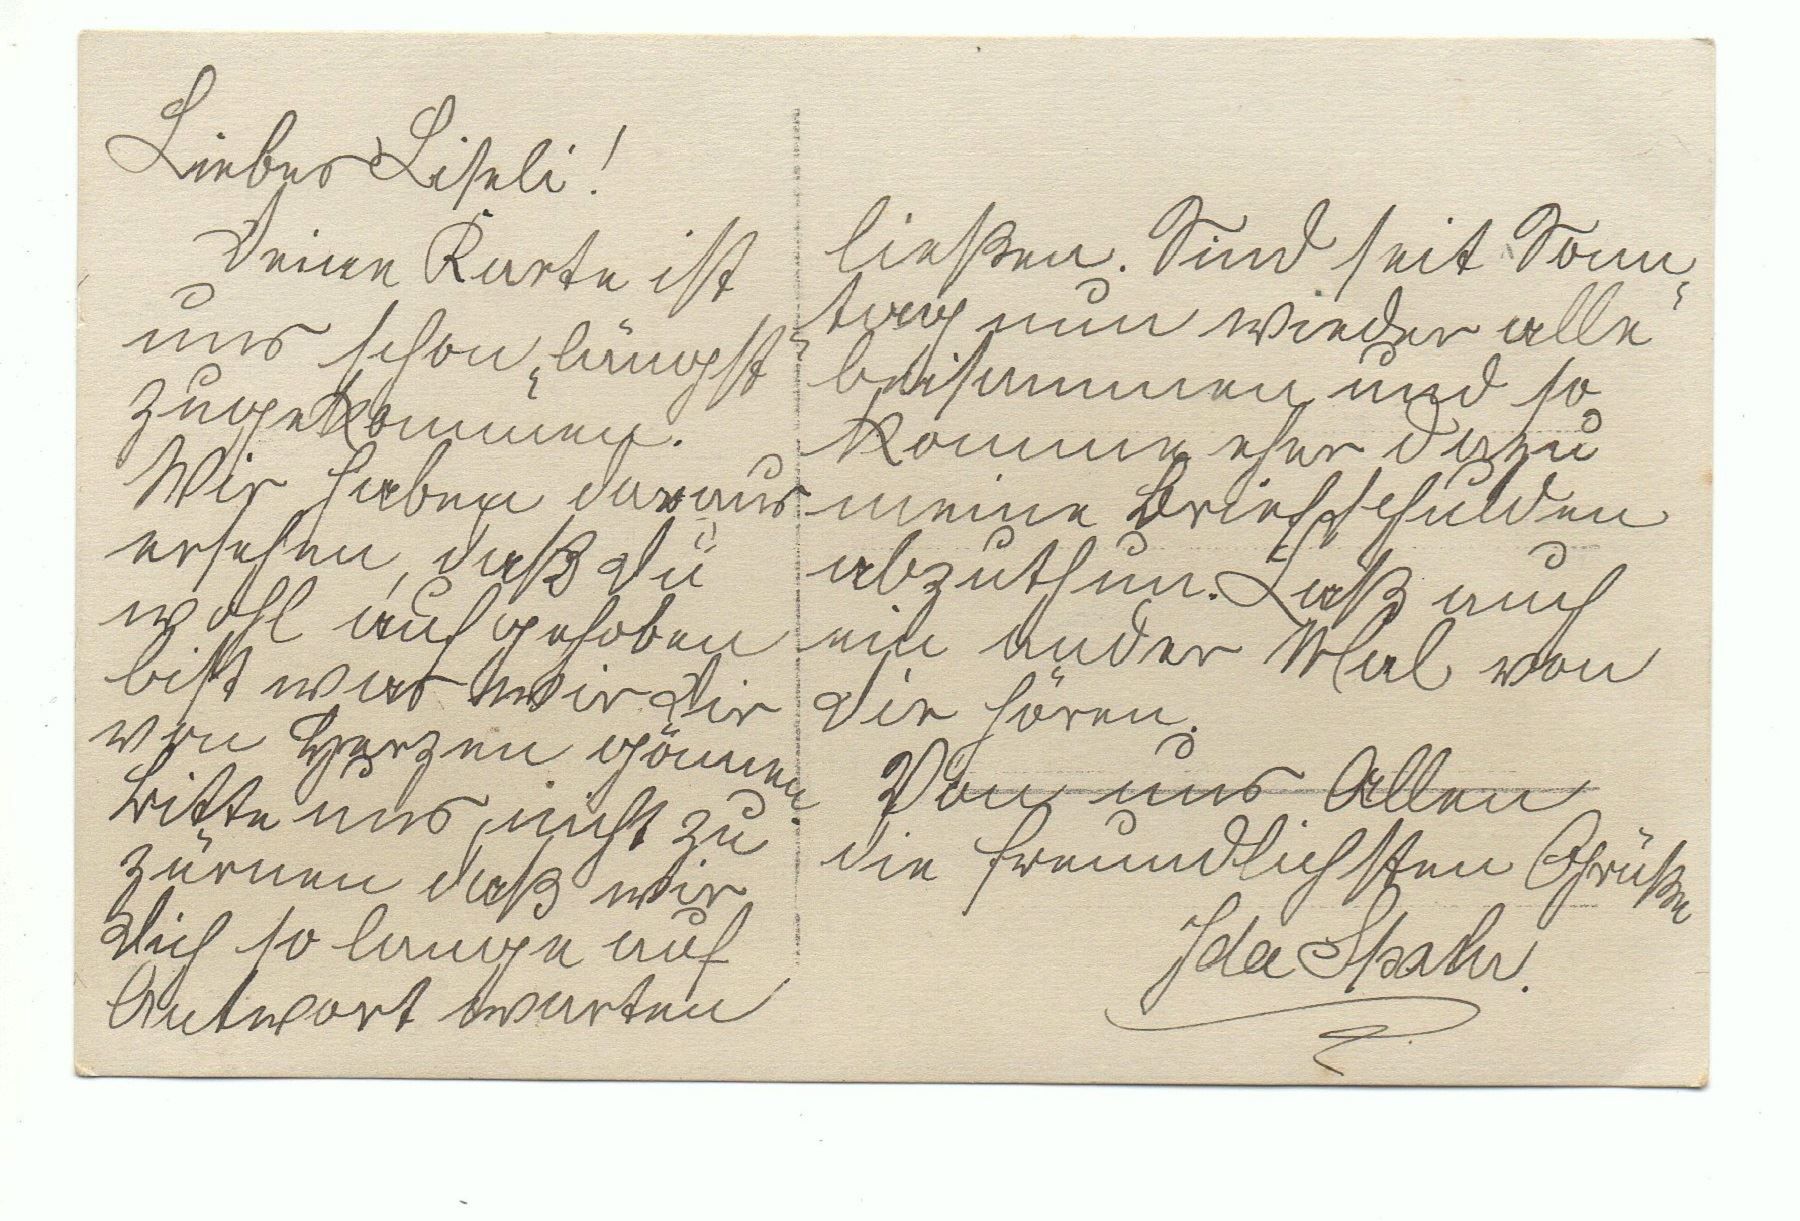 Liebes Liseli!
Deine Karte ist
uns schon längst
zugekommen.
Wir haben daraus
ersehen, daß Du
wohl aufgehoben
bist was wir Dir
von Herzen gönnen.
Bitte uns nicht zu
zürnen daß wir
Dich so lange auf
Antwort warten
ließen. Sind seit Sonn-
tag nun wieder alle
beisammen und so
komme eher dazu
meine Briefschulden
abzuthun. Laß auch
ein ander Mal von
Dir hören.
Von uns Allen
die freundlichsten Grüße
Ida Spahr.